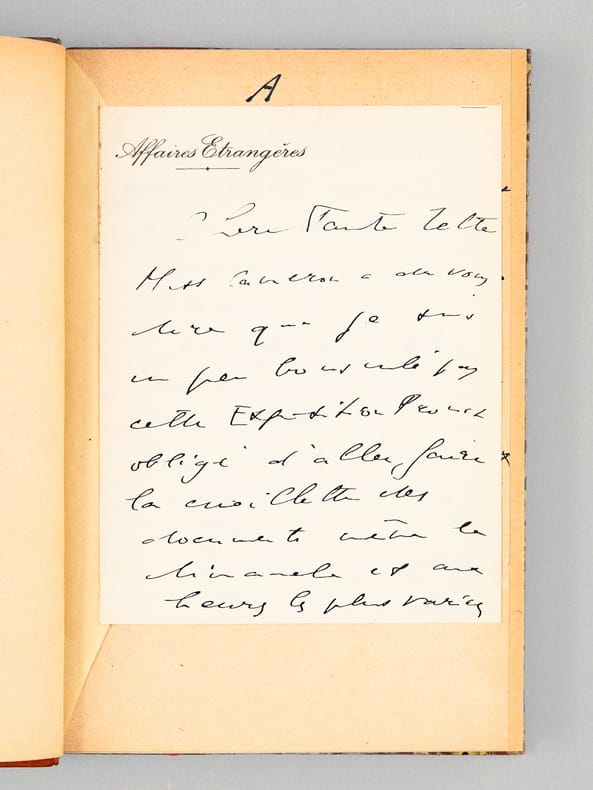 A
Affaires Etrangères
Chère Tante Tette
Miss Cameron a dû vous
dire que je suis
un peu bousculé par
cette Exposition Proust
obligé d'aller faire
la cueillette des
documents même le
dimanche et aux
heures les plus variées